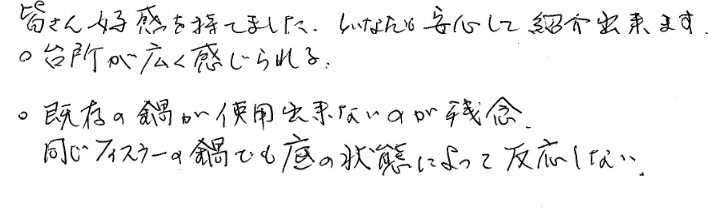 皆さん好感を持てました。いなたも安心して紹介出来ます。
○台所が広く感じられる。
○既存の鍋が使用出来ないのが残念。
同じフィスラーの鍋でも底の状態によって反応しない。